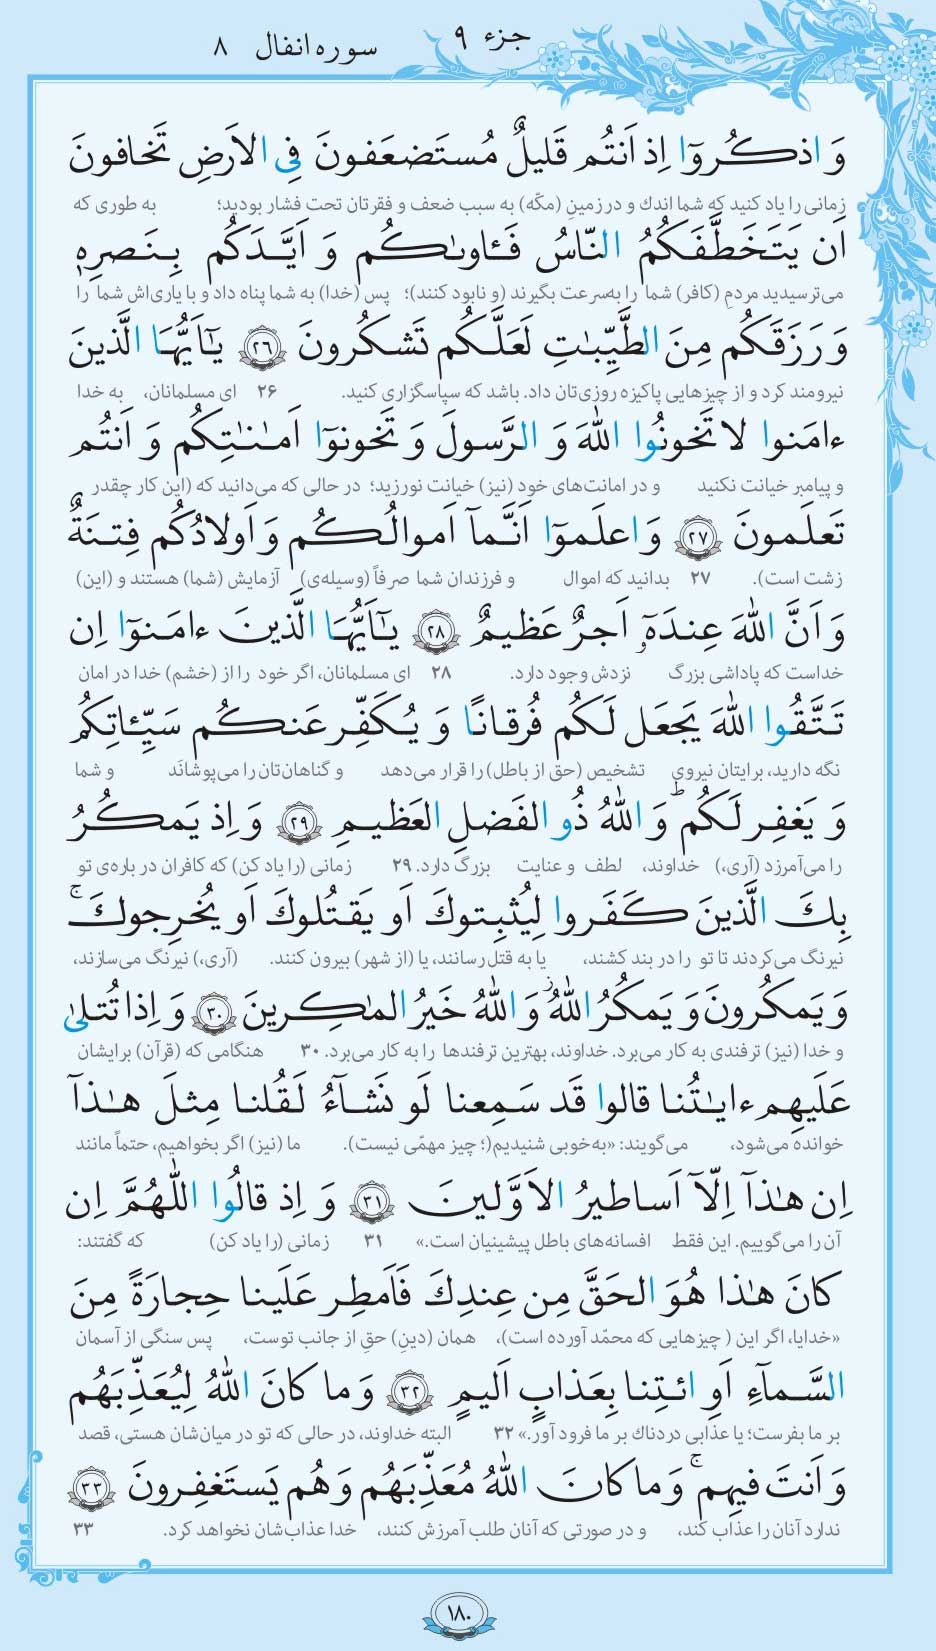 جزء ۹
سوره انفال ۸
وَ اذكُروٓا اِذ اَنتُم قَليلٌ مُستَضعَفونَ فِى الاَرضِ تَخافونَ
زمانی را یاد کنید که شما اندك و در زمینِ (مکّه) به سبب ضعف و فقرتان تحت فشار بودید؛ به طوری که
اَن يَتَخَطَّفَكُمُ النّاسُ فَـٔاوىٰكُم وَ اَيَّدَكُم بِنَصرِهٖ
می‌ترسیدید مردمِ (کافر) شما را به‌سرعت بگیرند (و نابود کنند)؛ پس (خدا) به شما پناه داد و با یاری‌اش شما را
وَ رَزَقَكُم مِنَ الطَّيِّبٰتِ لَعَلَّكُم تَشكُرونَ ﴿۲۶﴾ يٰٓاَيُّهَا الَّذينَ
نیرومند کرد و از چیزهایی پاکیزه روزی‌تان داد. باشد که سپاسگزاری کنید. ۲۶ ای مسلمانان، به خدا
ءامَنوا لا تَخونُوا اللّٰهَ وَ الرَّسولَ وَ تَخونوٓا اَمٰنٰتِكُم وَ اَنتُم
و پیامبر خیانت نکنید و در امانت‌های خود (نیز) خیانت نورزید؛ در حالی که می‌دانید که (این کار چقدر
تَعلَمونَ ﴿۲۷﴾ وَ اعلَموٓا اَنَّمآ اَموالُكُم وَ اَولادُكُم فِتنَةٌ
زشت است). ۲۷ بدانید که اموال و فرزندان شما صرفاً (وسیله‌ی) آزمایش (شما) هستند و (این)
وَ اَنَّ اللّٰهَ عِندَهٗٓ اَجرٌ عَظيمٌ ﴿۲۸﴾ يٰٓاَيُّهَا الَّذينَ ءامَنوٓا اِن
خداست که پاداشی بزرگ نزدش وجود دارد. ۲۸ ای مسلمانان، اگر خود را از (خشم) خدا در امان
تَتَّقُوا اللّٰهَ يَجعَل لَكُم فُرقانًا وَ يُكَفِّر عَنكُم سَيِّـٔاتِكُم
نگه دارید، برایتان نیروی تشخیص (حق از باطل) را قرار می‌دهد و گناهان‌تان را می‌پوشانَد و شما
وَ يَغفِر لَكُم ۗ وَ اللّٰهُ ذُو الفَضلِ العَظيمِ ﴿۲۹﴾ وَ اِذ يَمكُرُ
را می‌آمرزد (آری،) خداوند، لطف و عنایت بزرگ دارد. ۲۹ زمانی (را یاد کن) که کافران در باره‌ی تو
بِكَ الَّذينَ كَفَروا لِيُثبِتوكَ اَو يَقتُلوكَ اَو يُخرِجوكَ ۚ
نیرنگ می‌کردند تا تو را در بند کشند، یا به قتل رسانند، یا (از شهر) بیرون کنند. (آری،) نیرنگ می‌سازند،
وَ يَمكُرونَ وَ يَمكُرُ اللّٰهُ ۖ وَ اللّٰهُ خَيرُ المٰكِرينَ ﴿۳۰﴾ وَ اِذا تُتلىٰ
و خدا (نیز) ترفندی به کار می‌برد. خداوند، بهترین ترفندها را به کار می‌برد. ۳۰ هنگامی که (قرآن) برایشان
عَلَيهِم ءايٰتُنا قالوا قَد سَمِعنا لَو نَشآءُ لَقُلنا مِثلَ هٰذآ
خوانده می‌شود، می‌گویند: «به‌خوبی شنیدیم(؛ چیز مهمّی نیست). ما (نیز) اگر بخواهیم، حتماً مانند
اِن هٰذآ اِلّآ اَساطيرُ الاَوَّلينَ ﴿۳۱﴾ وَ اِذ قالُوا اللّٰهُمَّ اِن
آن را می‌گوییم. این فقط افسانه‌های باطل پیشینیان است.» ۳۱ زمانی (را یاد کن) که گفتند:
كانَ هٰذا هُوَ الحَقَّ مِن عِندِكَ فَاَمطِر عَلَينا حِجارَةً مِنَ
«خدایا، اگر این ( چیزهایی که محمّد آورده است)، همان (دینِ) حقِ از جانب توست، پس سنگی از آسمان
السَّمآءِ اَوِ ائـتِنا بِعَذابٍ اَليمٍ ﴿۳۲﴾ وَ ما كانَ اللّٰهُ لِيُعَذِّبَهُم
بر ما بفرست؛ یا عذابی دردناك بر ما فرود آور.» ۳۲ البته خداوند، در حالی که تو در میان‌شان هستی، قصد
وَ اَنتَ فيهِم ۚ وَ ما كانَ اللّٰهُ مُعَذِّبَهُم وَ هُم يَستَغفِرونَ ﴿۳۳﴾
ندارد آنان را عذاب کند، و در صورتی که آنان طلب آمرزش کنند، خدا عذاب‌شان نخواهد کرد. ۳۳
۱۸۰